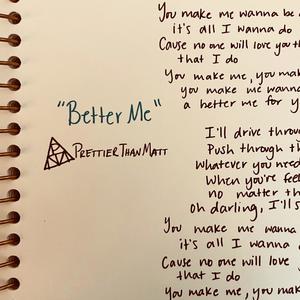 "Better Me"
PrettierThanMatt
You make me wanna be
it's all I wanna do
Cause no one will love you th
that I do
You make me, you mak
you make me wanna
a better me for y
I'll drive throu
Push through th
Whatever you need
When you're feel
no matter th
oh darling, I'll s
You make me wanna
it's all I wanna
Cause no one will love
that I do
You make me, you mak